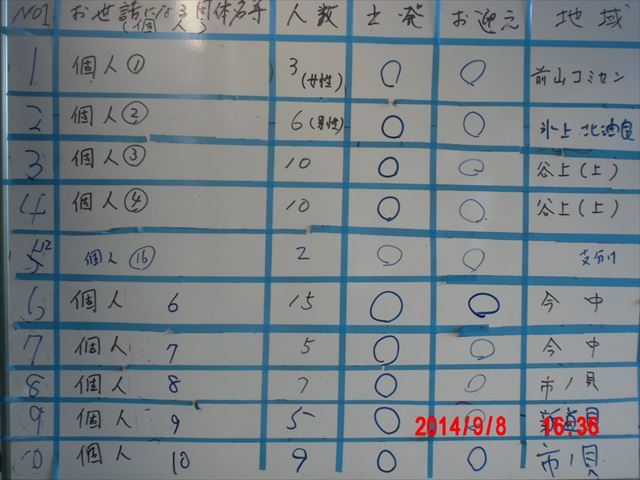 NO1 お世話になる団体名等 人数 出発 お迎え 地域
(個人)
1 個人① 3(女性) ○ ○ 前山コミセン
2 個人② 6(男性) ○ ○ 氷上 北油良
3 個人③ 10 ○ ○ 谷上(上)
4 個人④ 10 ○ ○ 谷上(上)
5 12 個人⑯ 2 ○ ○
6 個人 6 15 ○ ○ 今中
7 個人 7 5 ○ ○ 今中
8 個人 8 7 ○ ○ 市ノ貝
9 個人 9 5 ○ ○
10 個人 10 9 ○ ○ 市ノ貝
2014/9/8 16:36